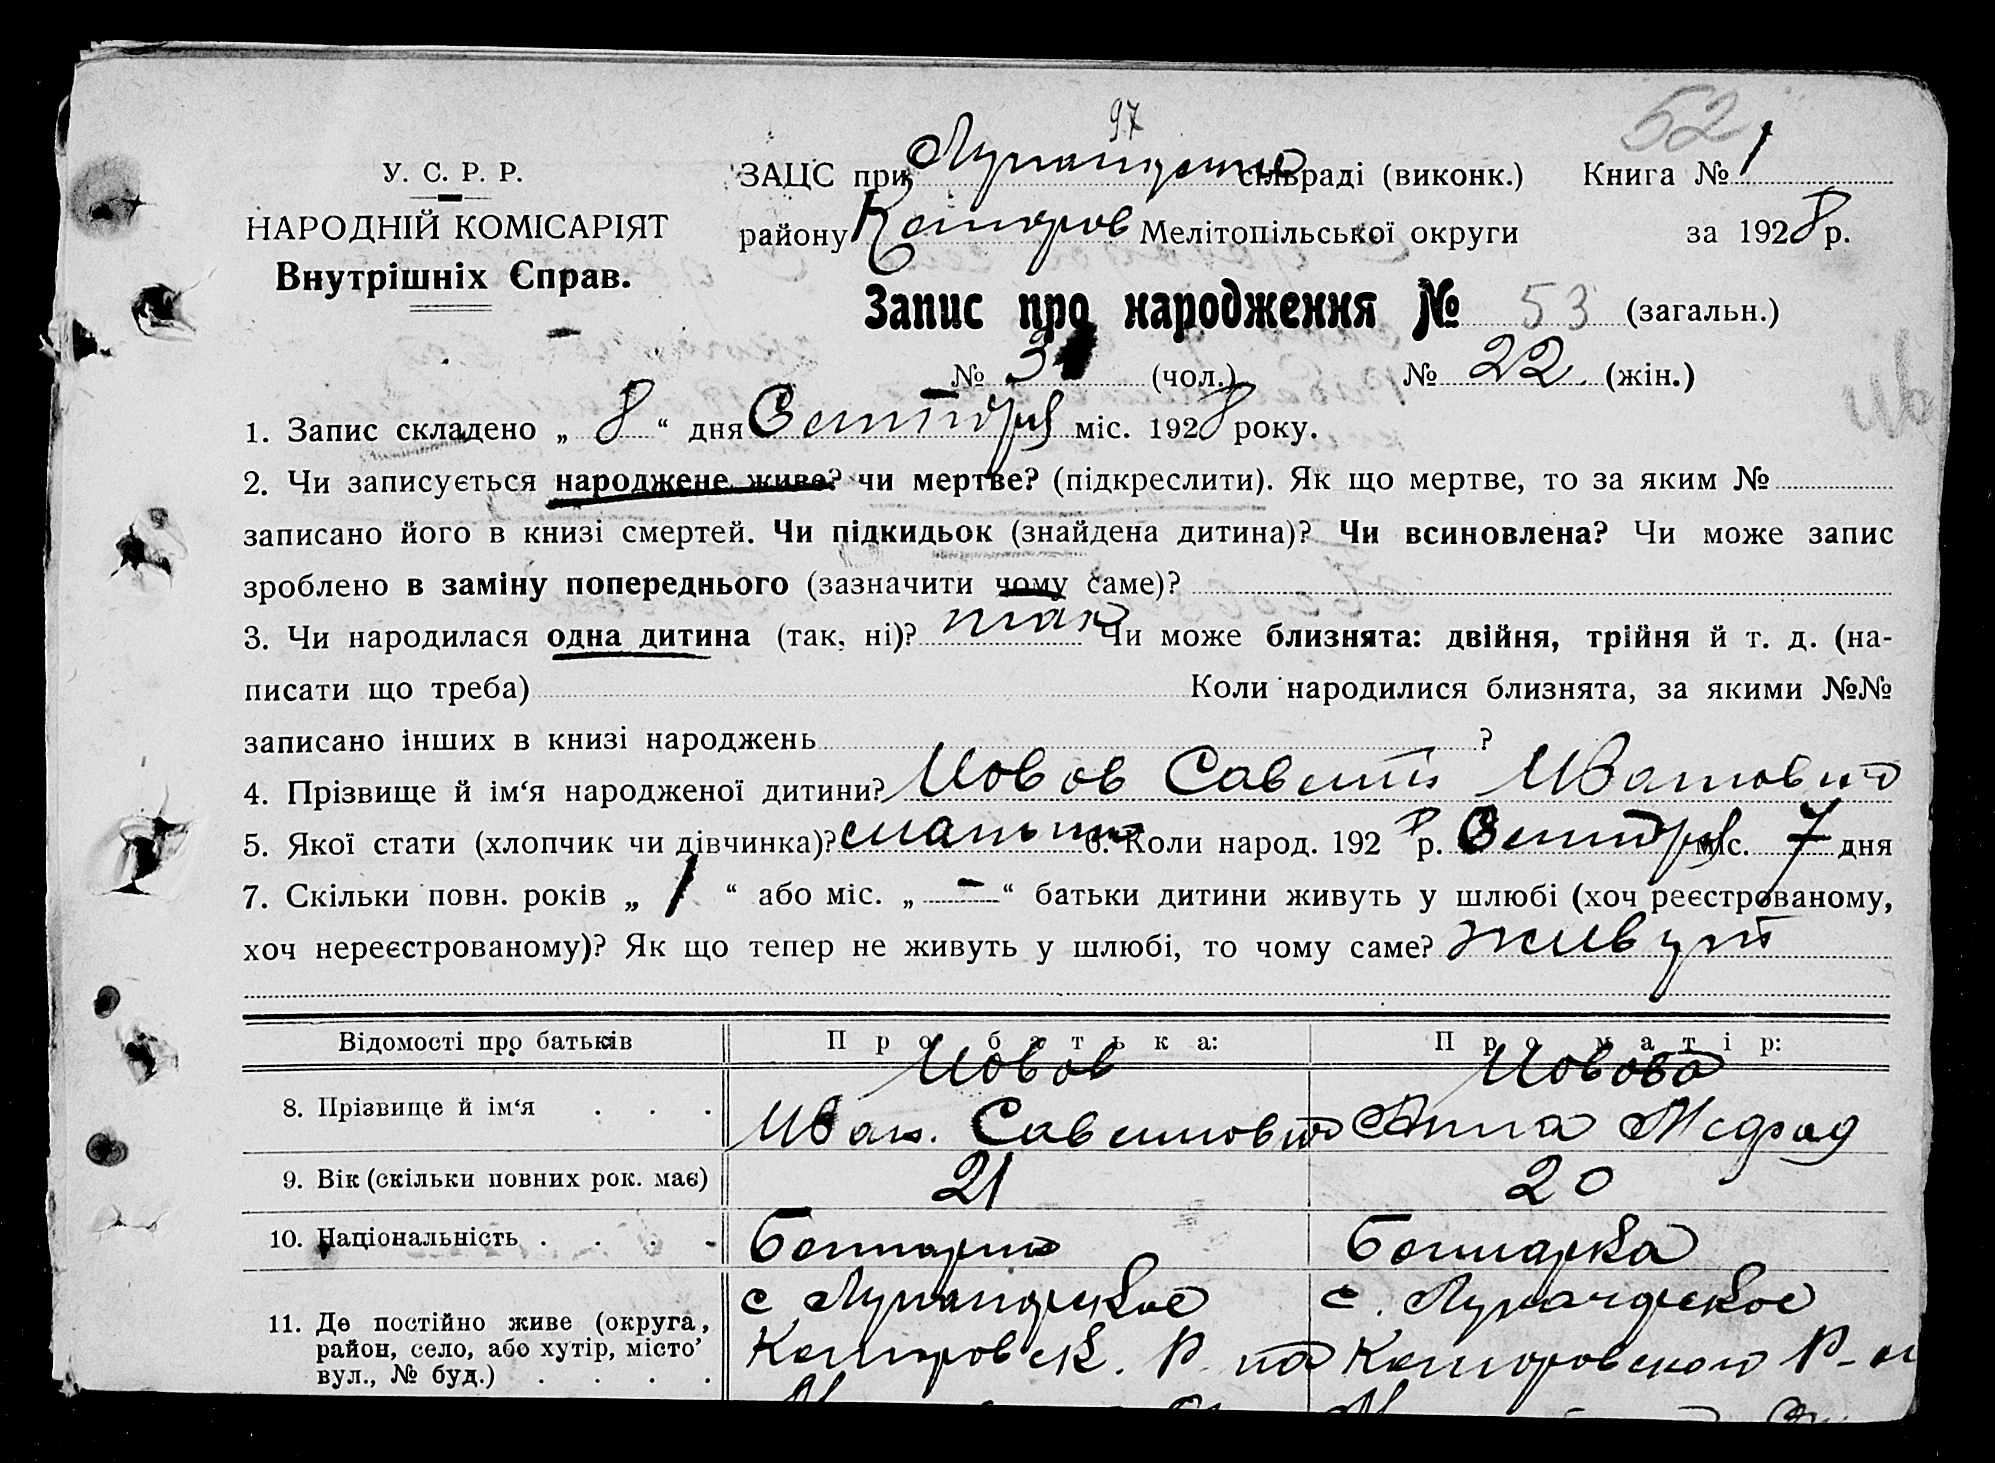 97
52
У. С. Р. Р.
НАРОДНІЙ КОМІСАРІЯТ
Внутрішніх Справ.
ЗАЦС при сільраді (виконк.) Книга № 1
району Мелітопільської округи за 1928 р.
Запис про народження № 53 (загальн.)
№ 3 (чол.) № 22 (жін.)
1. Запис складено „ 8 “ дня Сентября міс. 1928 року.
2. Чи записується народжене живе? чи мертве? (підкреслити). Як що мертве, то за яким №
записано його в книзі смертей. Чи підкидьок (знайдена дитина)? Чи всиновлена? Чи може запис
зроблено в заміну попереднього (зазначити чому саме)?
3. Чи народилася одна дитина (так, ні)? так Чи може близнята: двійня, трійня й т. д. (на-
писати що треба) Коли народилися близнята, за якими №№
записано інших в книзі народжень ?
4. Прізвище й ім‘я народженої дитини? Иовов Савелий Иванович
5. Якої стати (хлопчик чи дівчинка)? 6. Коли народ. 1928 р. Сентября міс. 7 дня
7. Скільки повн. років „ 1 “ або міс. „ — “ батьки дитини живуть у шлюбі (хоч реєстрованому,
хоч нереєстрованому)? Як що тепер не живуть у шлюбі, то чому саме? живут
Відомості про батьків Про батька: Про матір:
8. Прізвище й ім‘я . . . Иовов Иван Савелиович Иовова Анна
9. Вік (скільки повних рок. має) 21 20
10. Національність . . . . Болгарин Болгарка
11. Де постійно живе (округа, с с.
район, село, або хутір, місто
вул., № буд.) . . . .